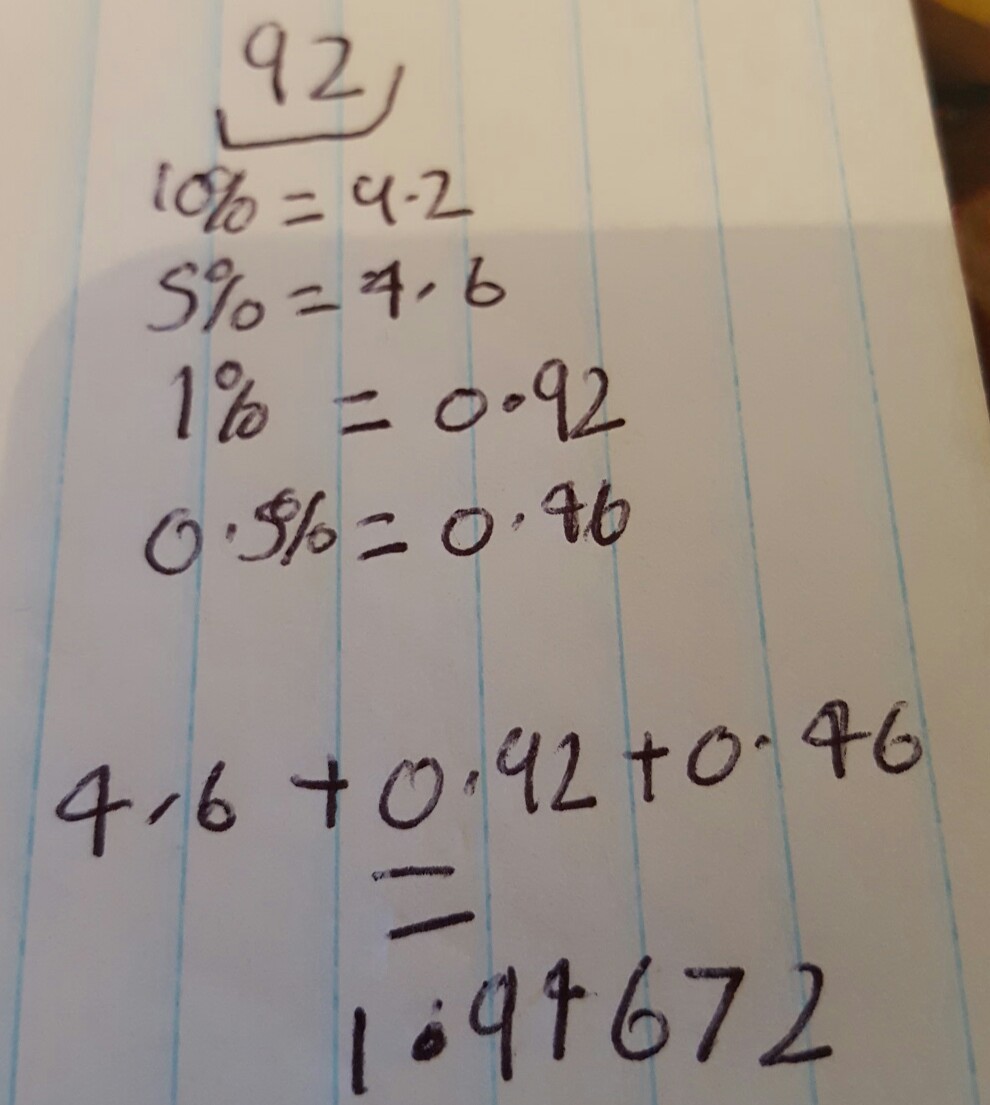 92
10% = 9.2
5% = 4.6
1% = 0.92
0.5% = 0.46
4.6 + 0.92 + 0.46
=
1.94672